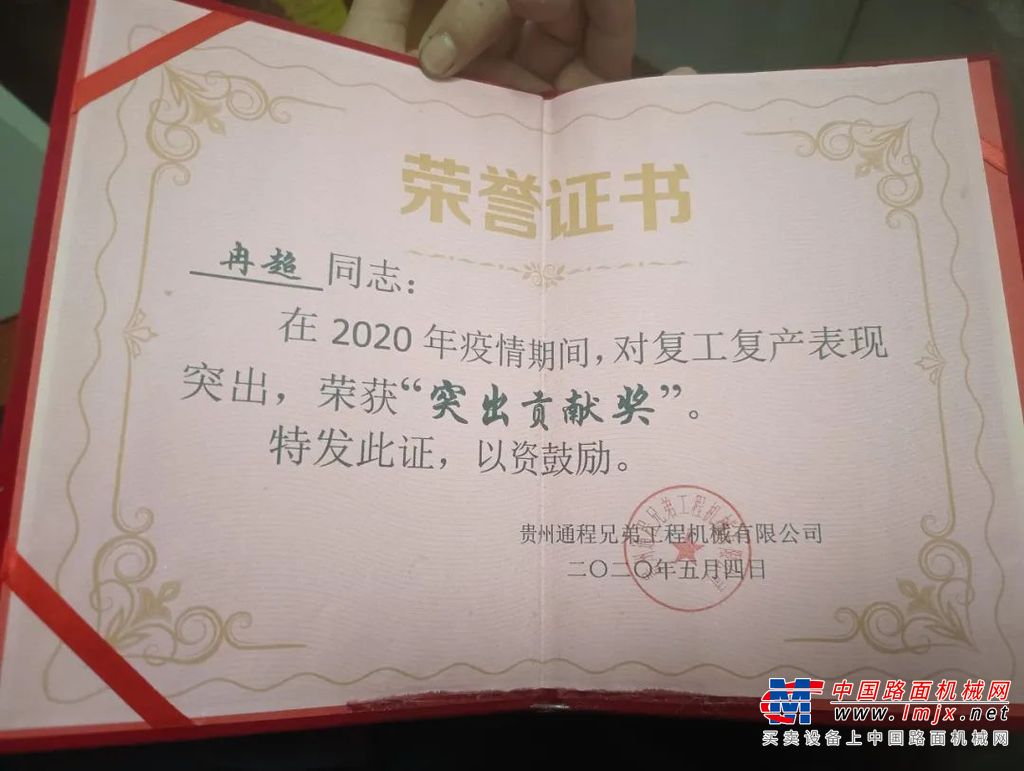 荣誉证书
冉超 同志：
在 2020 年疫情期间，对复工复产表现
突出，荣获“突出贡献奖”。
特发此证，以资鼓励。
贵州通程兄弟工程机械有限公司
二〇二〇年五月四日
中国路面机械网
www.lmjx.net
买卖设备上中国路面机械网